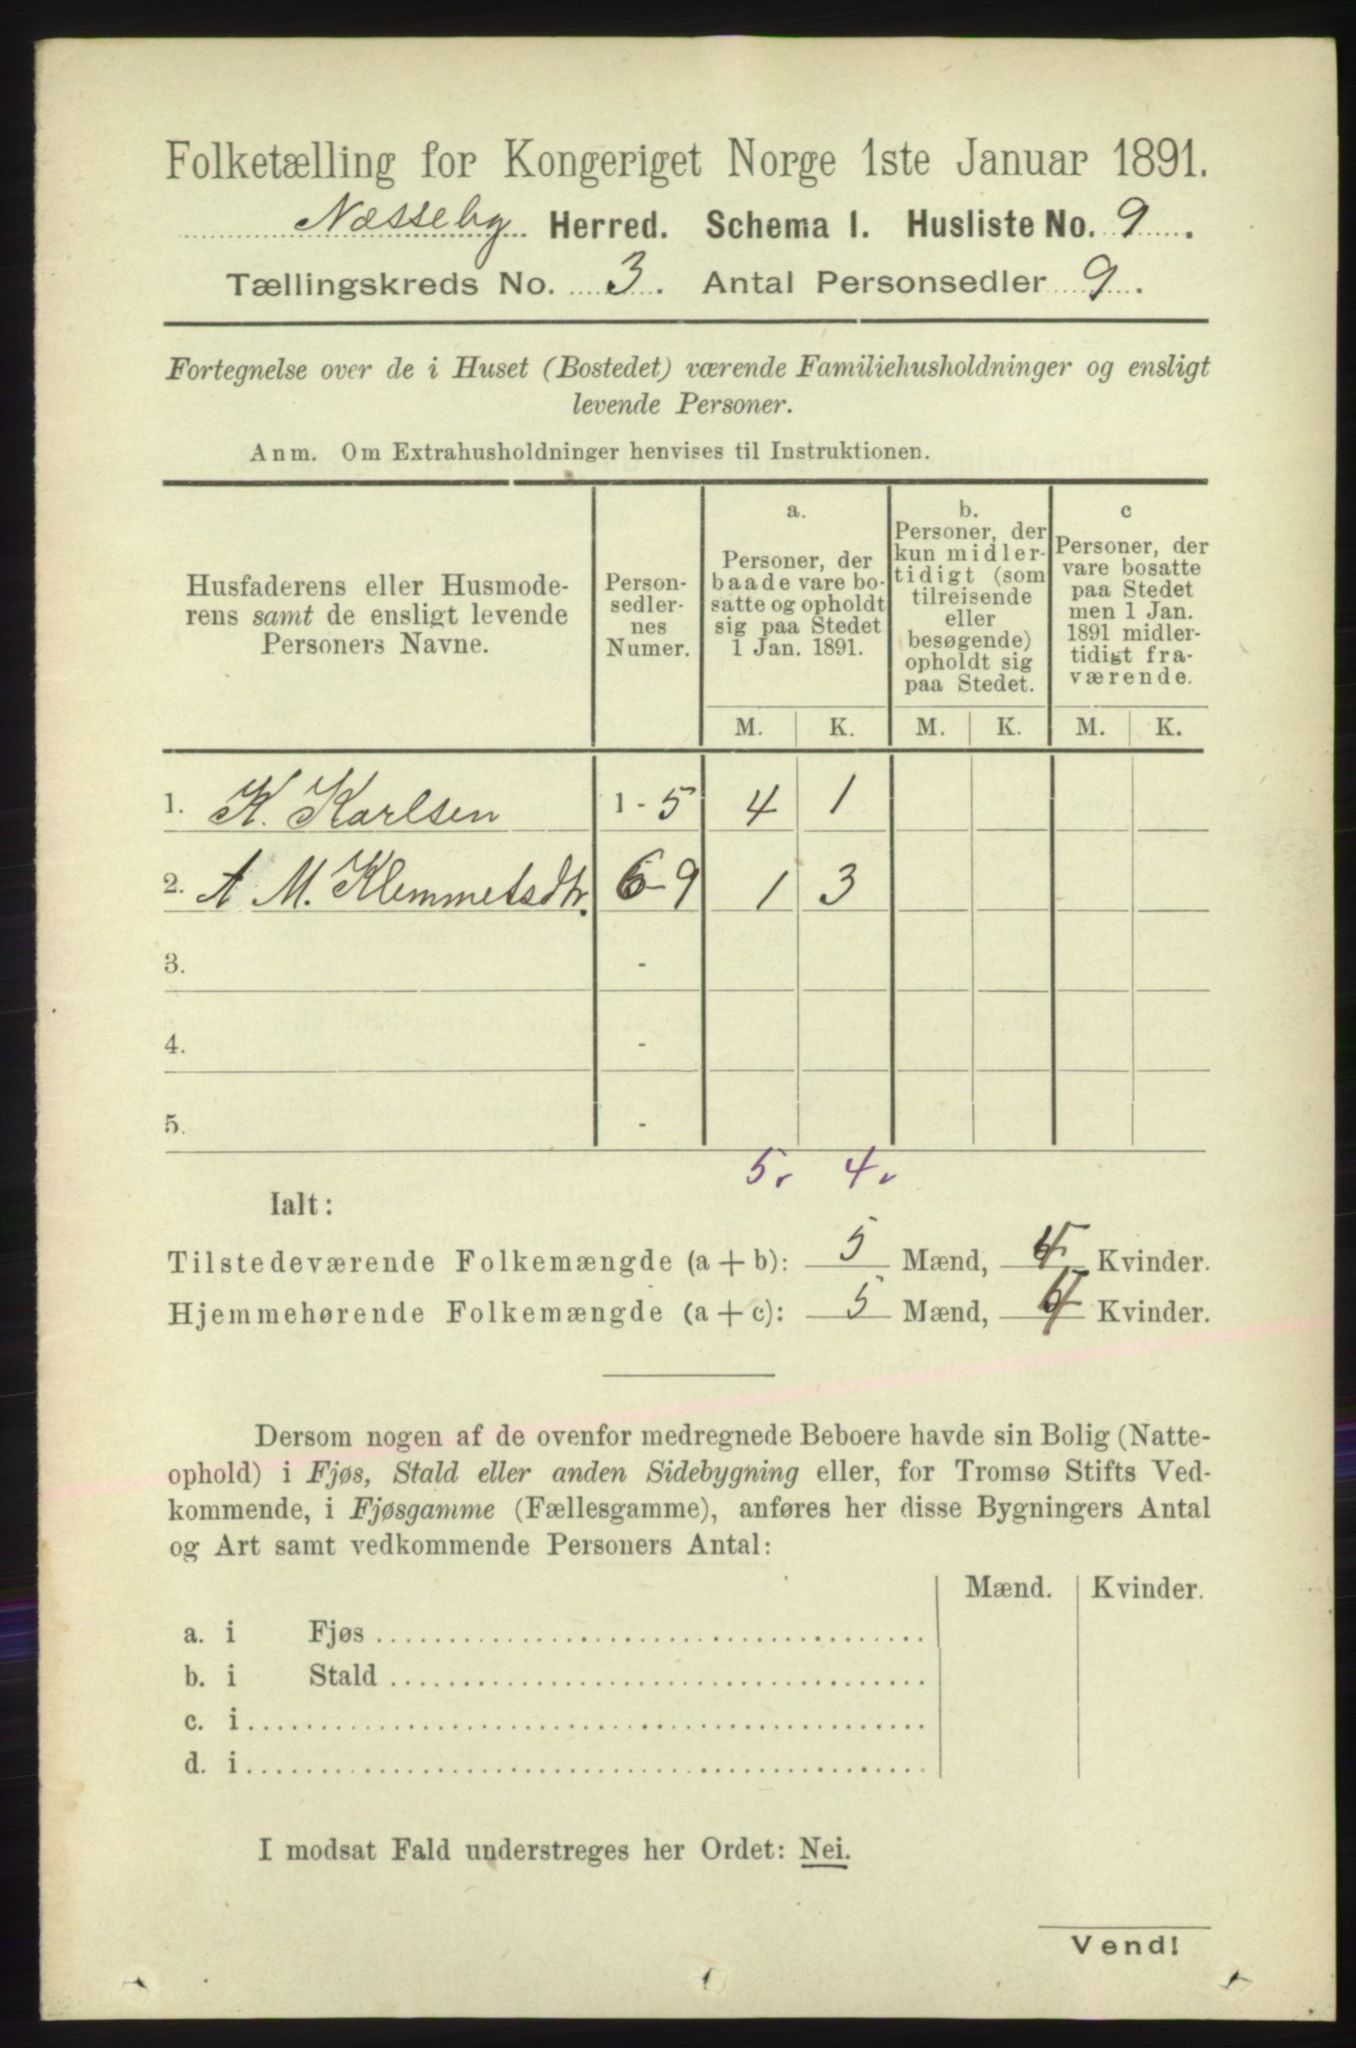 Folketælling for Kongeriget Norge 1ste Januar 1891.
Næsseby Herred. Schema I. Husliste No. 9.
Tællingskreds No. 3. Antal Personsedler 9.
Fortegnelse over de i Huset (Bostedet) værende Familiehusholdninger og ensligt
levende Personer.
Anm. Om Extrahusholdninger henvises til Instruktionen.
Husfaderens eller Husmode-
rens samt de ensligt levende
Personers Navne.
Person-
sedler-
nes
Numer.
a.
Personer, der
baade vare bo-
satte og opholdt
sig paa Stedet
1 Jan. 1891.
b.
Personer, der
kun midler-
tidigt (som
tilreisende
eller
besøgende)
opholdt sig
paa Stedet.
c
Personer, der
vare bosatte
paa Stedet
men 1 Jan.
1891 midler-
tidigt fra-
værende.
M. K. M. K. M. K.
1. K. Karlsen 1 - 5 4 1
2. A M. Klemmetsdtr. 6-9 1 3
3. -
4. -
5. -
5. 4.
Ialt:
Tilstedeværende Folkemængde (a + b): 5 Mænd, 4 Kvinder.
Hjemmehørende Folkemængde (a + c): 5 Mænd, 4 Kvinder.
Dersom nogen af de ovenfor medregnede Beboere havde sin Bolig (Natte-
ophold) i Fjøs, Stald eller anden Sidebygning eller, for Tromsø Stifts Ved-
kommende, i Fjøsgamme (Fællesgamme), anføres her disse Bygningers Antal
og Art samt vedkommende Personers Antal:
Mænd. Kvinder.
a. i Fjøs
b. i Stald
c. i
d. i
I modsat Fald understreges her Ordet: Nei.
Vend!